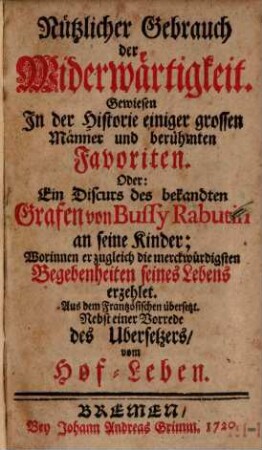 Nützlicher Gebrauch
der
Widerwärtigkeit.
Gewiesen
In der Historie einiger grossen
Männer und berühmten
Favoriten.
Oder:
Ein Discurs des bekandten
Grafen von Bussy Rabutin
an seine Kinder;
Worinnen er zugleich die merckwürdigsten
Begebenheiten seines Lebens
erzehlet.
Aus dem Frantzösischen übersetzt.
Nebst einer Vorrede
des Ubersetzers/
vom
Hof-Leben.
BREMEN/
Bey Johann Andreas Grimm, 1720.